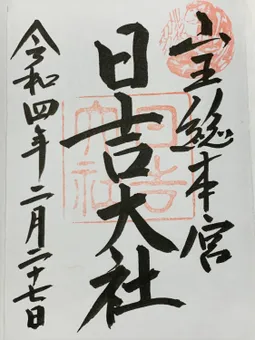 山王総本宮
日吉大社
令和四年二月二十七日
日吉大社